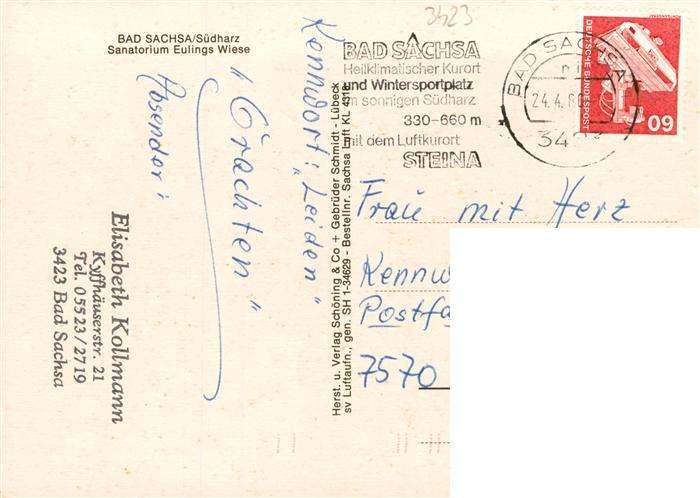 3423
BAD SACHSA/Südharz
Sanatorium Eulings Wiese
Kennwort: „Leiden"
"Trachten"
Absender:
Elisabeth Kollmann
Kyffhäuserstr. 21
Tel. 05523/2719
3423 Bad Sachsa
Herst. u. Verlag Schöning & Co + Gebrüder Schmidt - Lübeck
sv Luftaufn., gen. SH 1-34629 - Bestellnr. Sachsa Luft KL 4318
BAD SACHSA
Heilklimatischer Kurort
und Wintersportplatz
im sonnigen Südharz
330-660 m
mit dem Luftkurort
STEINA
BAD SACHSA
24.4.8
342
DEUTSCHE BUNDESPOST
60
Frau mit Herz
Kennw
Postfa
7570